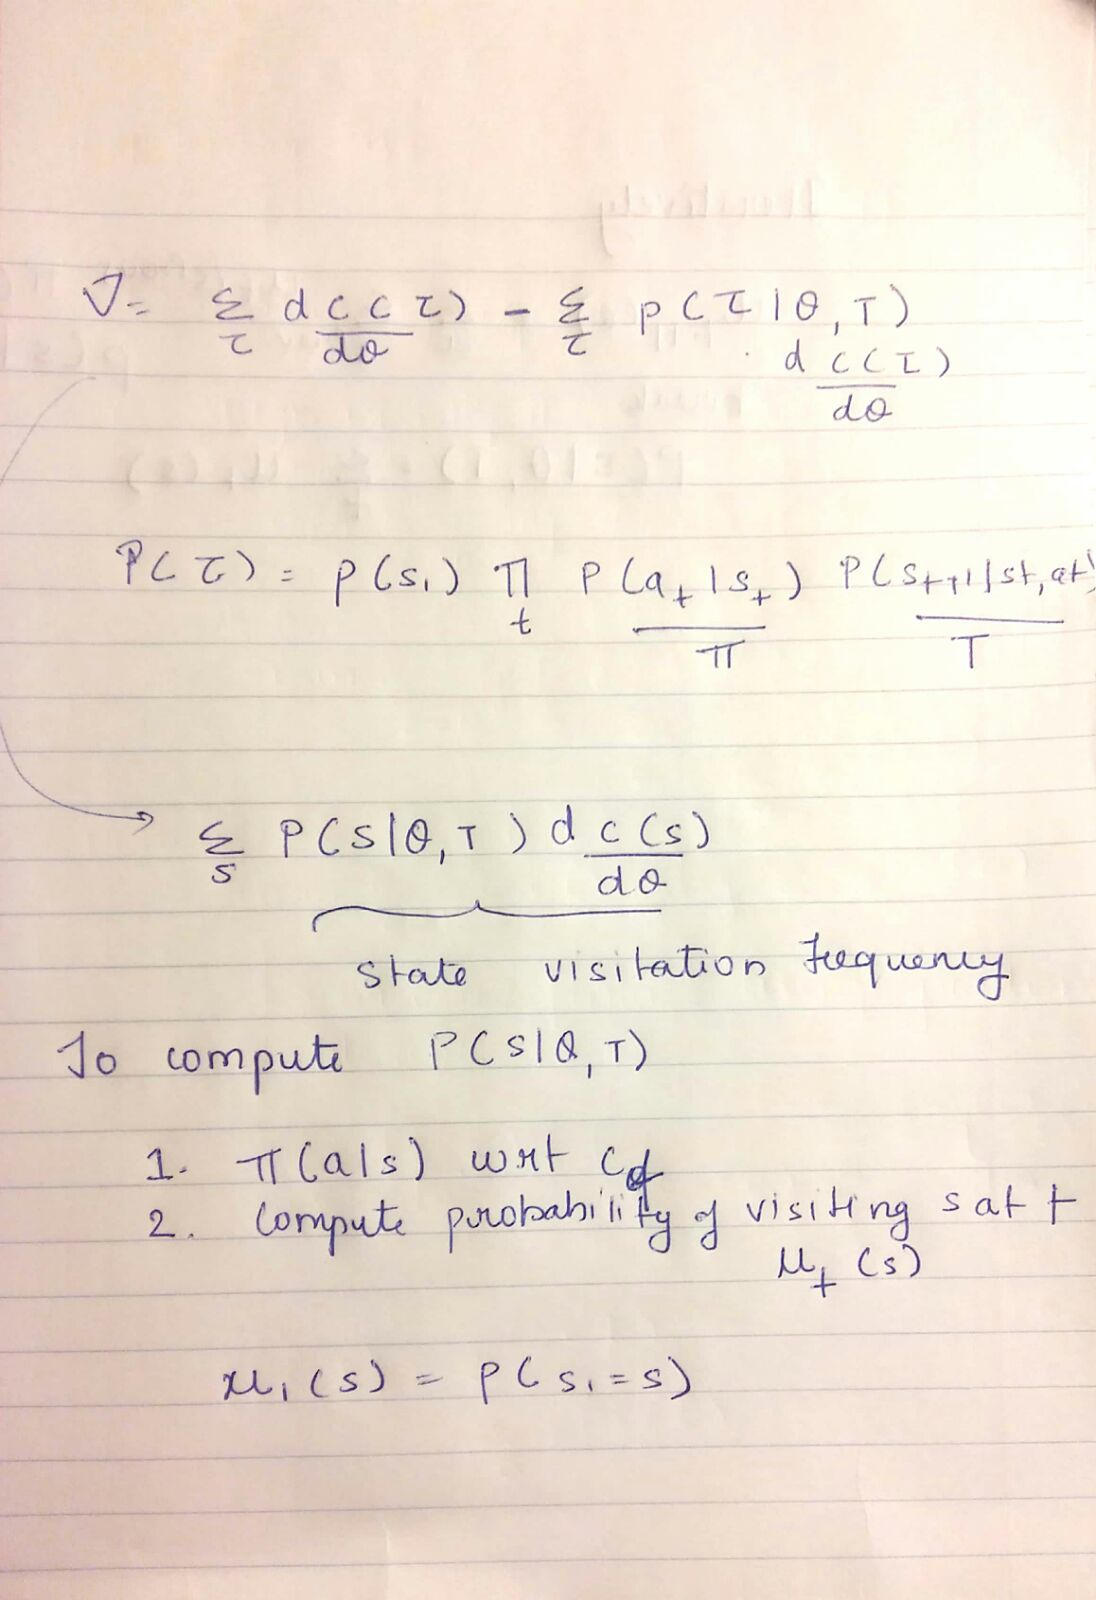 ∇ = Σ_τ dc(τ)/dθ - Σ_τ p(τ|θ,T)
dc(τ)/dθ
P(τ) = p(s₁) Π_t P(a_t|s_t) P(s_t+1|st,at)
π T
Σ_s P(s|θ,T) dc(s)/dθ
state visitation frequency
To compute P(s|θ,T)
1. π(a|s) wrt c_θ
2. Compute probability of visiting s at t
μ_t(s)
μ₁(s) = p(s₁=s)